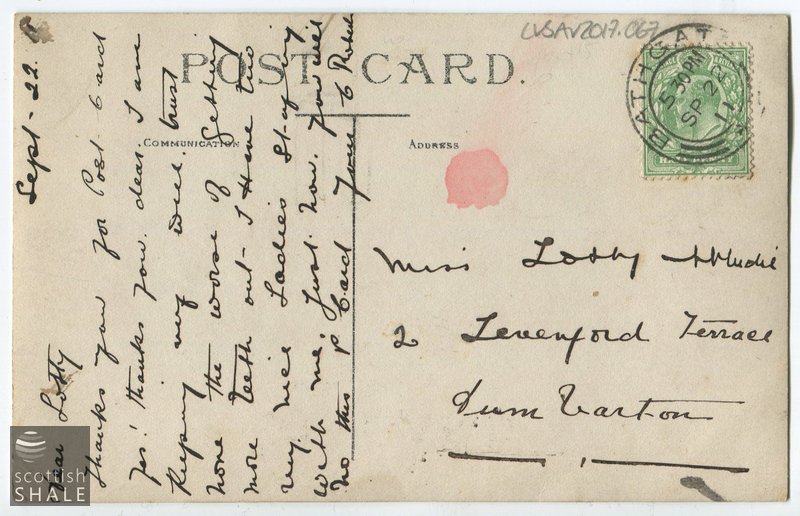 LVSAV2017.067
POST CARD.
COMMUNICATION
ADDRESS
BATHGATE
5.30 PM
SP 22
11
HALFPENNY
Miss Lotty Mudie
2 Levenford Terrace
Dumbarton
Sept - 22.
Dear Lotty
Thanks you for Post Card
yes! thanks you. dear. I am
Keeping very well. trust
none the worse of getting
more teeth out - I Have two
very nice Ladies Staying
with me, just now. you will
no this P Card yours C
scottish
SHALE